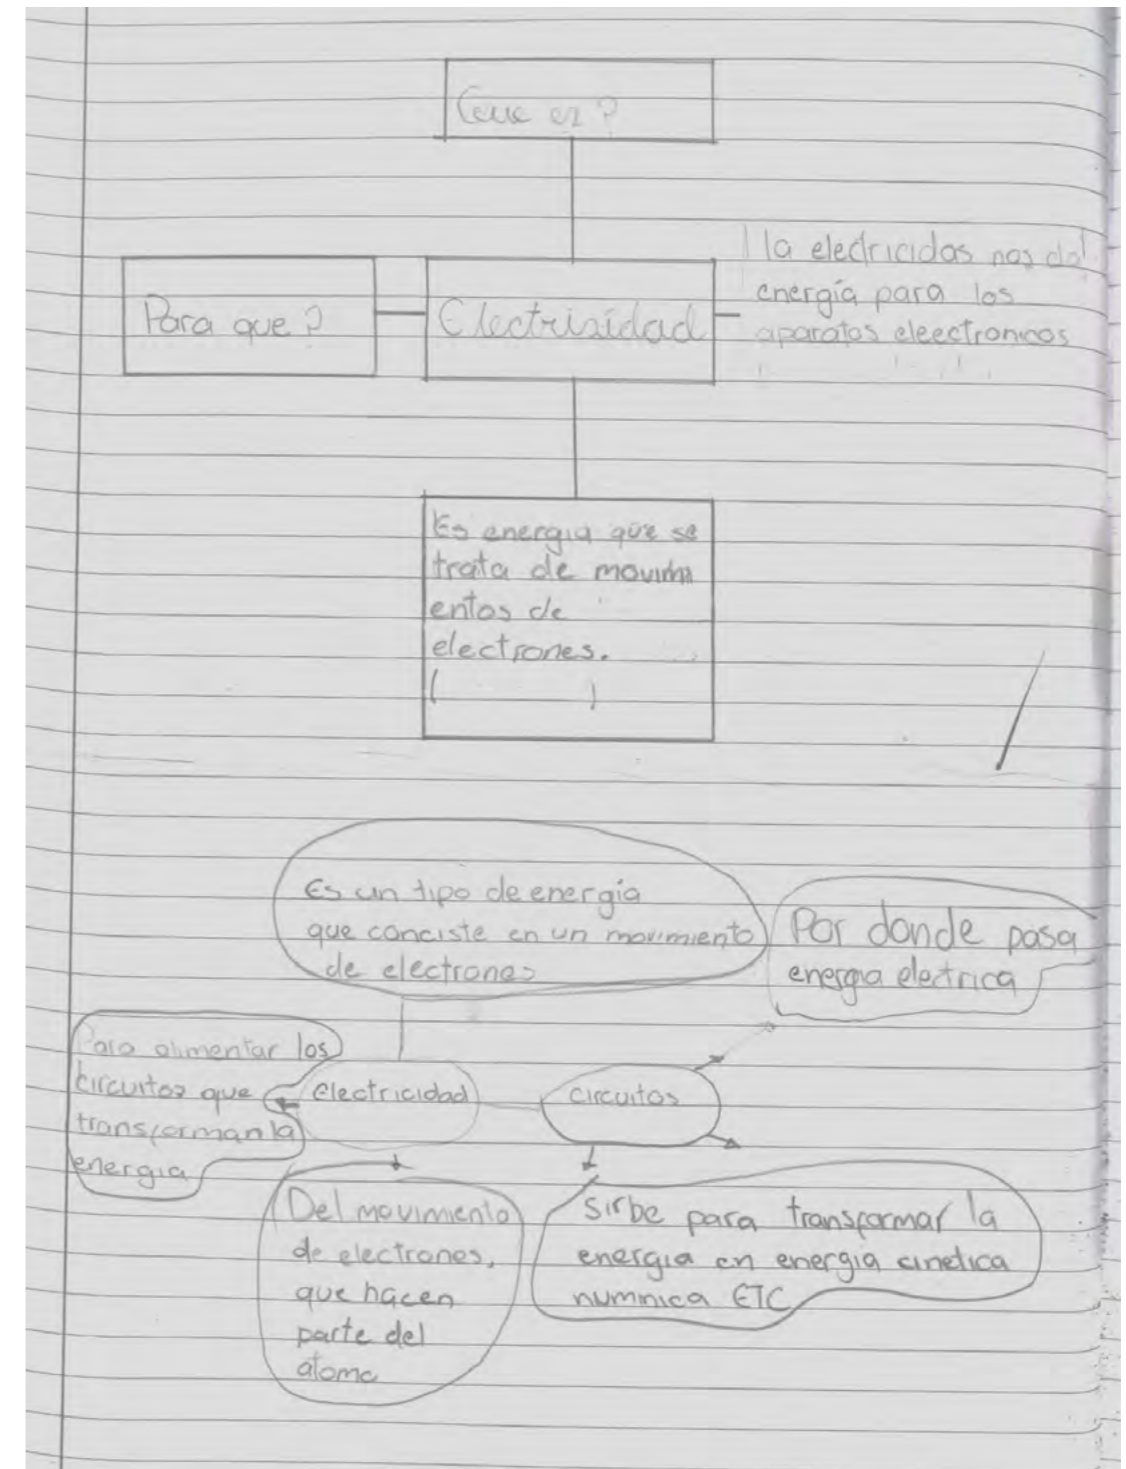 Que es?
Para que?
Electrisidad
la electricidas nos da
energía para los
aparatos eleectronicos
Es energia que se
trata de movimi
entos de
electrones.
Es un tipo de energía
que conciste en un movimiento
de electrones
Por donde pasa
energia electrica
Para alimentar los
circuitos que
transforman la
energia
Electricidad
circuitos
Del movimiento
de electrones,
que hacen
parte del
atomo
Sirbe para transformar la
energia en energia cinetica
ETC